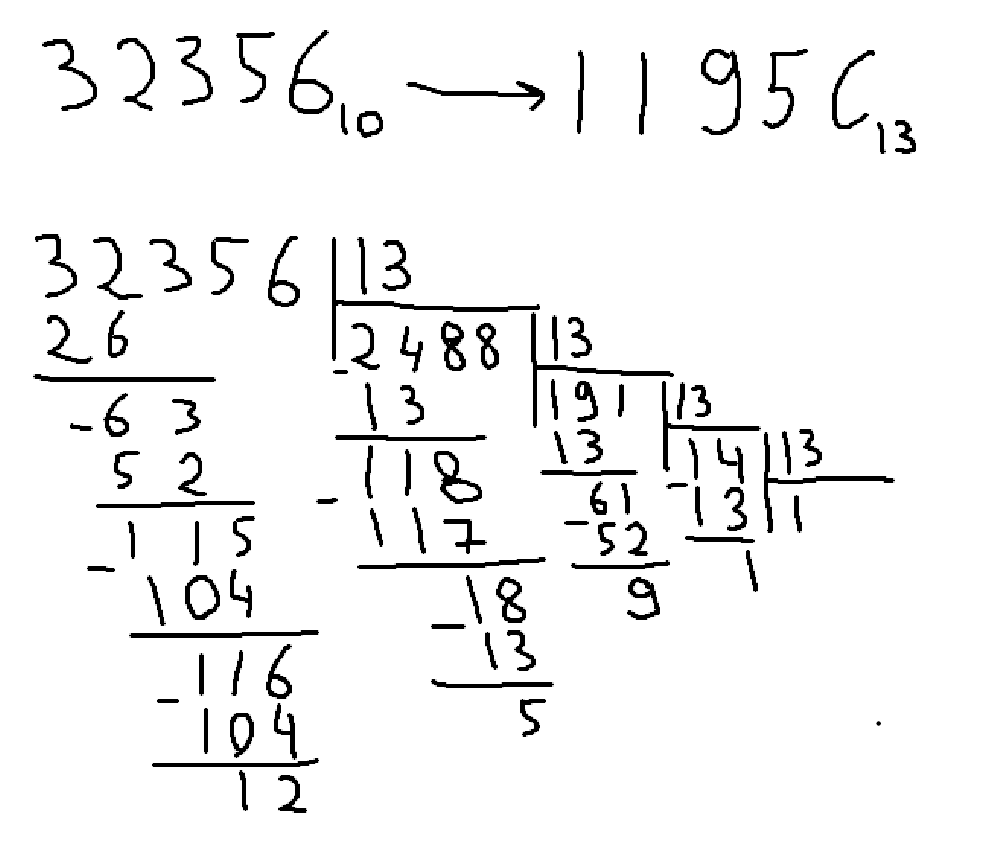 32356₁₀ → 1195C₁₃
32356 | 13
26
-63
52
-115
104
-116
104
12
-2488 | 13
13
-118
117
-18
13
5
191 | 13
13
-61
52
9
-14 | 13
13
1
1